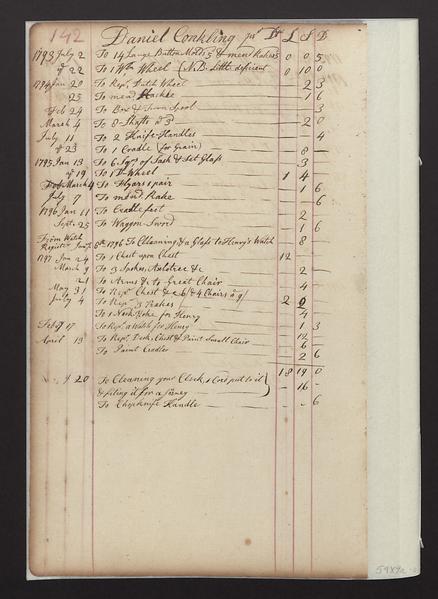 142 Daniel Conkling jur Dr L S D
1793 July 2 To 14 Large Button Molds 5 & mend Rakes 0 0 5
22 To 1 Wn Wheel (N.B. Little deficient 0 10 0
1794 Jan 20 To Repg Dutch Wheel - 2 3
25 To mend - 1 6
Feb 24 To Box & Iron Spool - 3
March 4 To 8 Shafts a 3 - 2 0
July 11 To 2 Knife Handles - - 4
23 To 1 Cradle (for Grain) - 8 -
1795 Jan 13 To 6 Sqrs of Sash & Set Glass - 3
19 To 1 D Wheel 1 4
March 4 To Flyers 1 pair - 1 6
July 7 To mend Rake - - 6
1796 Jan 11 To Cradle foot - 2 -
Sept. 25 To Waggon - 1 6
From Watch
Register Jany 8th 1796 To Cleaning & a Glass to Henry's Watch - 8 -
1797 Jan 24 To 1 Chest upon Chest 12 -
March 9 To 3 Spokes Axletree &c - 2 -
21 To Arms &c to Great Chair - 4
May 31 To Repg Chest & 6/ & 4 Chairs a 9/ 2 2
July 4 To Repg 3 Rakes - 2
To 1 Neck Yoke for Henry - 4
17 To Repg a Watch for Henry - 1 3
April 13 To Repg Desk, Chest & Paint Small Chair - 12 -
- 6 -
To Paint Cradles - 2 6
18 19 0
20 To Cleaning your Clock, 1 Cord put to it - 16 -
& filing it for a
To Handle - - 6